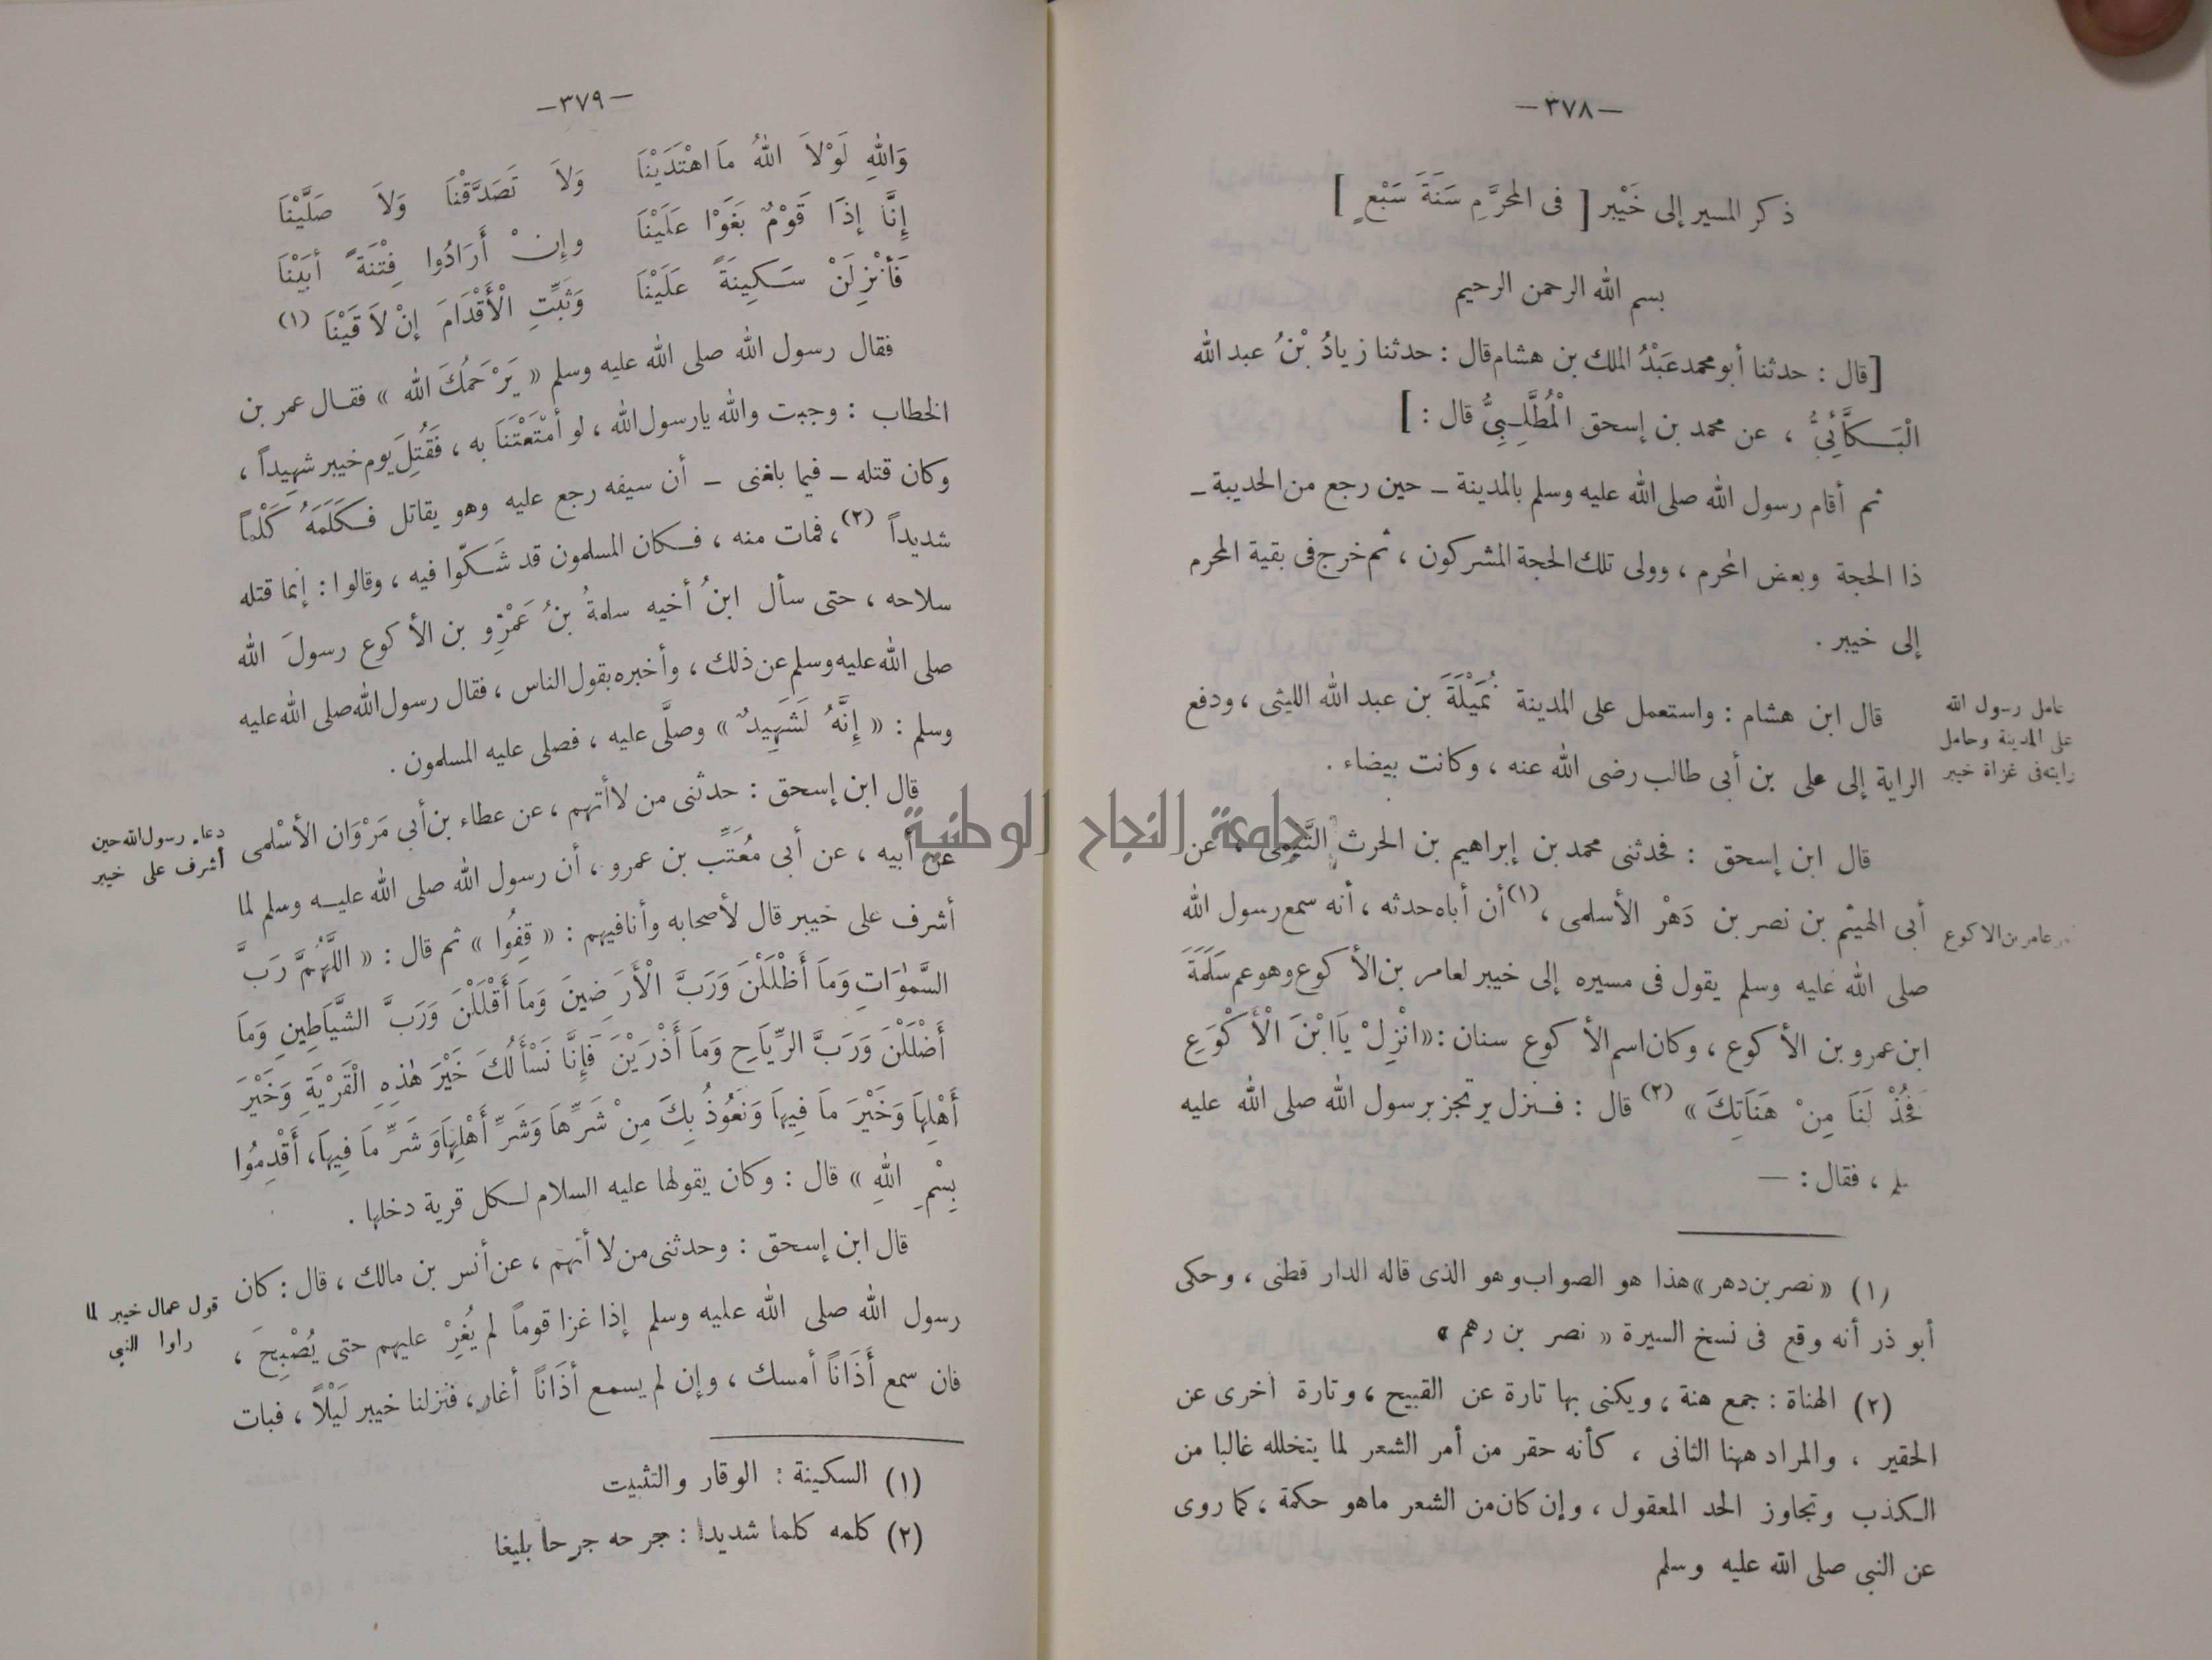 — ٣٧٨ —
ذكر المسير إلى خَيْبر [ فى المحرَّمِ سَنَةَ سَبْعٍ ]
بسم الله الرحمن الرحيم
[قال : حدثنا أبو محمد عَبْدُ الملك بن هشام قال : حدثنا زيادُ بْنُ عبد الله
الْبَكَّائِيُّ ، عن محمد بن إسحق الْمُطَّلِبِيُّ قال : ]
ثم أقام رسول الله صلى الله عليه وسلم بالمدينة – حين رجع من الحديبة –
ذا الحجة وبعض المحرم ، وولى تلك الحجة المشركون ، ثم خرج فى بقية المحرم
إلى خيبر .
قال ابن هشام : واستعمل على المدينة نُمَيْلَةَ بن عبد الله الليثى ، ودفع
الراية إلى على بن أبى طالب رضى الله عنه ، وكانت بيضاء .
عامل رسول الله
على المدينة وحامل
رايته فى غزاة خيبر
قال ابن إسحق : فحدثنى محمد بن إبراهيم بن الحرث التَّيْمِى ، عن
أبى الهيثم بن نصر بن دَهْر الأسلمى ،(١) أن أباه حدثه ، أنه سمع رسول الله
عامر بن الاكوع
صلى الله عليه وسلم يقول فى مسيره إلى خيبر لعامر بن الأكوع وهو عم سَلَمَةَ
ابن عمرو بن الأكوع ، وكان اسم الأكوع سنان : «انْزِلْ يَا ابْنَ الْأَكْوَعِ
فَخُذْ لَنَا مِنْ هَنَاتِكَ » (٢) قال : فنزل يرتجز برسول الله صلى الله عليه
، فقال : —
(١) « نصر بن دهر » هذا هو الصواب وهو الذى قاله الدار قطنى ، وحكى
أبو ذر أنه وقع فى نسخ السيرة « نصر بن رهم »
(٢) الهناة : جمع هنة ، ويكنى بها تارة عن القبيح ، وتارة أخرى عن
الحقير ، والمراد ههنا الثانى ، كأنه حقر من أمر الشعر لما يتخلله غالبا من
الكذب وتجاوز الحد المعقول ، وإن كان من الشعر ما هو حكمة ، كما روى
عن النبى صلى الله عليه وسلم
— ٣٧٩ —
وَاللهِ لَوْلاَ اللهُ مَا اهْتَدَيْنَا وَلاَ تَصَدَّقْنَا وَلاَ صَلَّيْنَا
إِنَّا إِذَا قَوْمٌ بَغَوْا عَلَيْنَا وإِنْ أَرَادُوا فِتْنَةً أَبَيْنَا
فَأَنْزِلَنْ سَكِينَةً عَلَيْنَا وَثَبِّتِ الْأَقْدَامَ إِنْ لاَقَيْنَا (١)
فقال رسول الله صلى الله عليه وسلم « يَرْحَمُكَ الله » فقال عمر بن
الخطاب : وجبت والله يا رسول الله ، لو أَمْتَعْتَنَا به ، فَقُتِلَ يوم خيبر شهيداً ،
وكان قتله – فيما بلغنى – أن سيفه رجع عليه وهو يقاتل فكَلَمَهُ كَلْماً
شديداً (٢) ، فمات منه ، فكان المسلمون قد شَكّوا فيه ، وقالوا : إنما قتله
سلاحه ، حتى سأل ابنُ أخيه سلمةُ بنُ عَمْرِو بن الأكوع رسولَ الله
صلى الله عليه وسلم عن ذلك ، وأخبره بقول الناس ، فقال رسول الله صلى الله عليه
وسلم : « إِنَّهُ لَشَهِيدٌ » وصلَّى عليه ، فصلى عليه المسلمون .
قال ابن إسحق : حدثنى من لا أتهم ، عن عطاء بن أبى مَرْوَان الأسْلمى
عن أبيه ، عن أبى مُعَتِّب بن عمرو ، أن رسول الله صلى الله عليه وسلم لما
دعاء رسول الله حين
أشرف على خيبر
أشرف على خيبر قال لأصحابه وأنا فيهم : « قِفُوا » ثم قال : « اللَّهُمَّ رَبَّ
السَّمٰوَاتِ وَمَا أَظْلَلْنَ وَرَبَّ الْأَرَضِينَ وَمَا أَقْلَلْنَ وَرَبَّ الشَّيَاطِينِ وَمَا
أَضْلَلْنَ وَرَبَّ الرِّيَاحِ وَمَا أَذْرَيْنَ فَإِنَّا نَسْأَلُكَ خَيْرَ هٰذِهِ الْقَرْيَةِ وَخَيْرَ
أَهْلِهَا وَخَيْرَ مَا فِيهَا وَنَعُوذُ بِكَ مِنْ شَرِّهَا وَشَرِّ أَهْلِهَا وَشَرِّ مَا فِيهَا، أَقْدِمُوا
بِسْمِ اللهِ » قال : وكان يقولها عليه السلام لكل قرية دخلها .
قال ابن إسحق : وحدثنى من لا أتهم ، عن أنس بن مالك ، قال : كان
رسول الله صلى الله عليه وسلم إذا غزا قوماً لم يُغِرْ عليهم حتى يُصْبِحَ ،
قول عمال خيبر لما
راوا النبى
فان سمع أَذَاناً أمسك ، وإن لم يسمع أذَاناً أغار ، فنزلنا خيبر لَيْلاً ، فبات
(١) السكينة : الوقار والتثبيت
(٢) كلمه كلما شديدا : جرحه جرحا بليغا
جامعة النجاح الوطنية